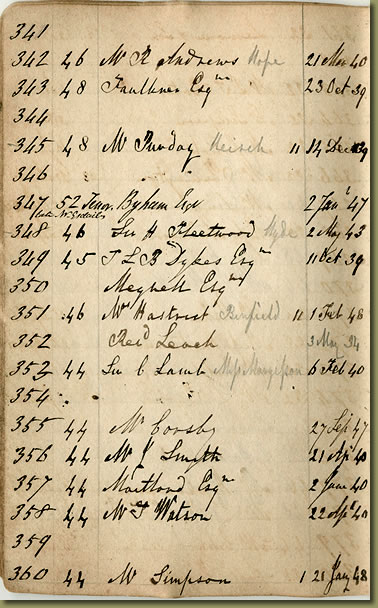 341
342 46 Mr R Andrews Hope 21 Mar 40
343 48 Faulkner Esqre 23 Oct 39
344
345 48 Mr Punday 11 14 Dec 39
346
347 52 Tenor Byham Esqr 2 Jany 47
348 46 Sir H Fleetwood Hyde 2 May 43
349 45 T L B Dykes Esqre 11 Oct 39
350 Meynell Esqre
351 46 Mr Hastrick Binfield 11 1 Feb 48
352 Revd Leach 3 May 34
352 44 Sir C Lamb Miss 6 Feb 40
354
355 44 Mr Crosby 27 Sep 47
356 44 Mr J Smyth 21 Apl 40
357 44 Maitland Esqre 2 June 40
358 44 Mr T Watson 22 Apl 40
359
360 44 Mr Simpson 1 21 Jany 48